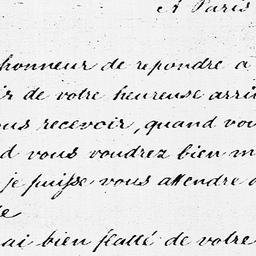 à Paris
honneur de repondre a
ir de votre heureuse arri
ous recevoir, quand vou
d vous voudrez bien m
je puisse vous attendre
te
ai bien flatté de votre